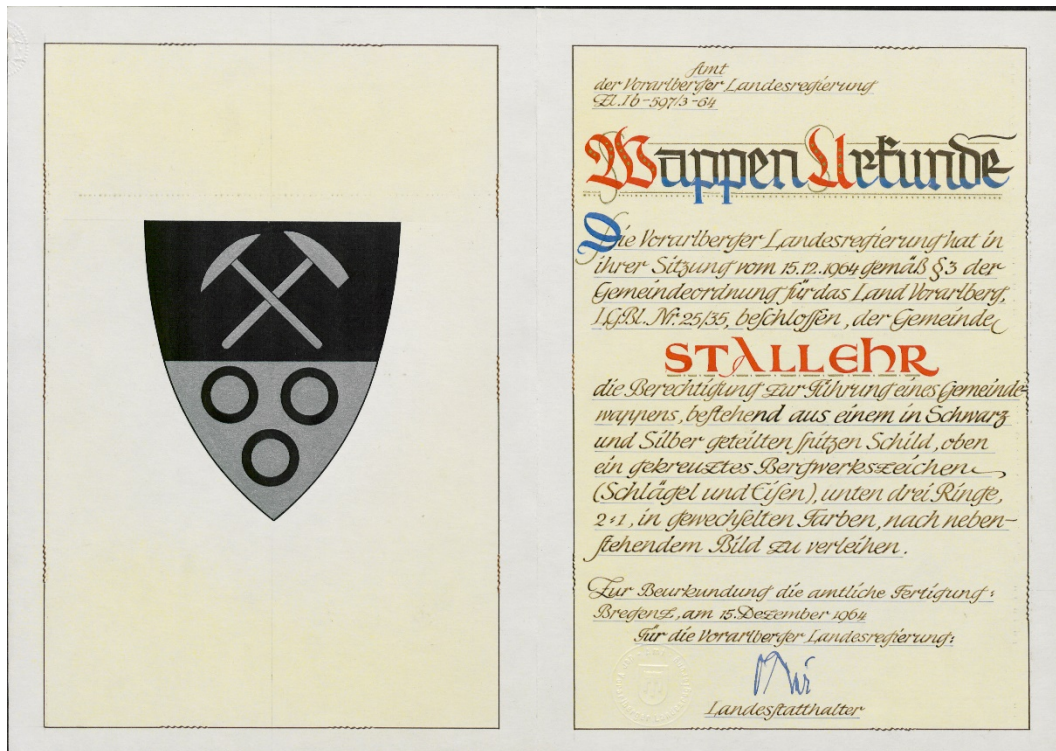 Amt
der Vorarlberger Landesregierung
Zl. Ib-597/3-64
Wappen Urkunde
Die Vorarlberger Landesregierung hat in
ihrer Sitzung vom 15.12.1964 gemäß § 3 der
Gemeindeordnung für das Land Vorarlberg,
LGBl. Nr. 25/35, beschlossen, der Gemeinde
STALLEHR
die Berechtigung zur Führung eines Gemeinde-
wappens, bestehend aus einem in Schwarz
und Silber geteilten spitzen Schild, oben
ein gekreuztes Bergwerkszeichen
(Schlägel und Eisen), unten drei Ringe,
2:1, in gewechselten Farben, nach neben-
stehendem Bild zu verleihen.
Zur Beurkundung die amtliche Fertigung:
Bregenz, am 15. Dezember 1964
Für die Vorarlberger Landesregierung:
Landesstatthalter